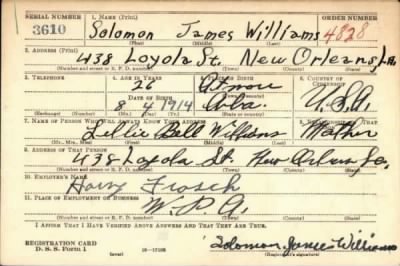 SERIAL NUMBER 1. NAME (Print) ORDER NUMBER
3610 Solomon James Williams 4828
(First) (Middle) (Last)
2. ADDRESS (Print)
438 Loyola St. New Orleans, La.
(Number and street or R. F. D. number) (Town) (County) (State)
3. TELEPHONE 4. AGE IN YEARS 5. PLACE OF BIRTH 6. COUNTRY OF CITIZENSHIP
26
(Town or county)
DATE OF BIRTH
8 4 1914 U.S.A.
(Exchange) (Number) (Mo.) (Day) (Yr.) (State or country)
7. NAME OF PERSON WHO WILL ALWAYS KNOW YOUR ADDRESS 8. RELATIONSHIP OF THAT PERSON
Lillie Bell Williams Mother
(Mr., Mrs., Miss) (First) (Middle) (Last)
9. ADDRESS OF THAT PERSON
438 Loyola St. New Orleans La.
(Number and street or R. F. D. number) (Town) (County) (State)
10. EMPLOYER'S NAME
Harry Frosch
11. PLACE OF EMPLOYMENT OR BUSINESS
W. P. A.
(Number and street or R. F. D. number) (Town) (County) (State)
I AFFIRM THAT I HAVE VERIFIED ABOVE ANSWERS AND THAT THEY ARE TRUE.
REGISTRATION CARD
D. S. S. Form 1 (over) Solomon James Williams
(Registrant's signature)